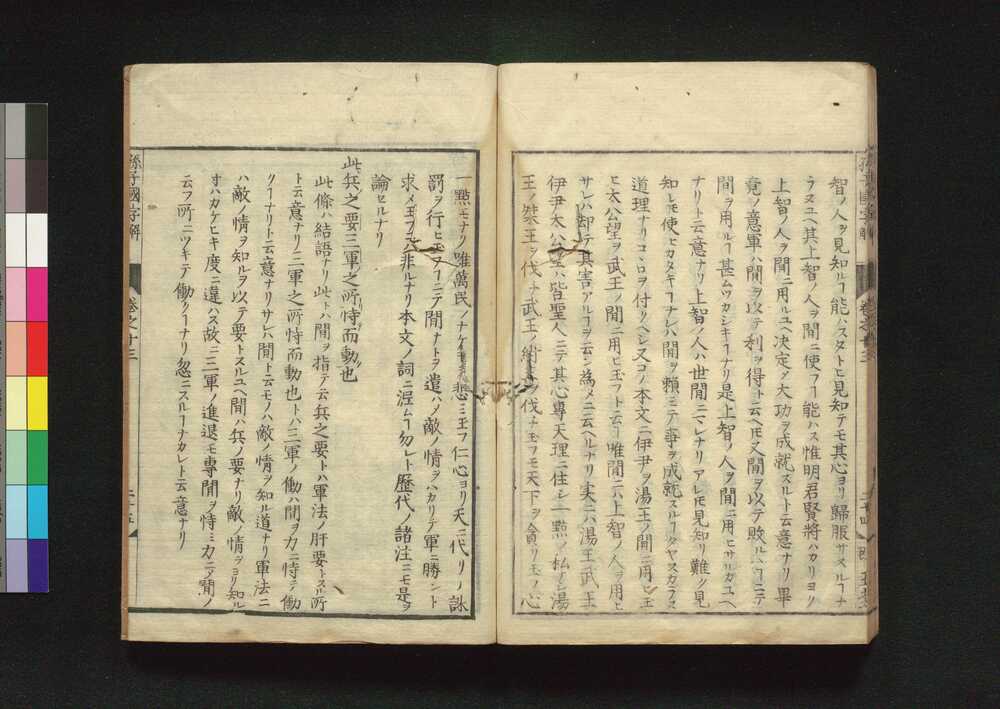 智ノ人ヲ見知ルヿ能ハスタトヒ見知テモ其心ヨリ歸服サスルヿナ
ラヌユヘ其上智ノ人ヲ間ニ使フヿ能ハス惟明君賢將ハカリヨク
上智ノ人ヲ間ニ用ルユヘ決定メ大功ヲ成就スルト云意ナリ畢
竟ノ意軍ハ間ヲ以テ利ヲ得ト云ヘ𪜈又間ヲ以テ敗ルヽヿニテ
間ヲ用ルヿ甚ムツカシキヿナリ是上智ノ人ヲ間ニ用ヒサルカユヘ
ナリト云意ナリ上智ノ人ハ世間ニマレナリアレ𪜈見知リ難ク見
知レ𪜈使ヒカタキヿナレハ間ヲ頼ミテ事ヲ成就スルヿタヤスカラス
道理ナリコヽロヲ付クヘシ又コノ本文ニ伊尹ヲ湯王ノ間ニ用ヒ玉
ヒ太公望ヲ武王ノ間ニ用ヒ玉フト云ヿ唯間ニハ上智ノ人ヲ用ヒ
サレハ却テ其害アルヿヲ云ン為メニ云ヘルナリ実ニハ湯王武王
伊尹太公望ハ皆聖人ニテ其心專天理ニ住シ一點ノ私ナシ湯
王ノ桀王ヲ伐チ武王ノ紂王ヲ伐チ玉フモ天下ヲ貪リ玉ノ心
一點モナクノ唯萬民ノナケキヲ悲ミ玉フ仁心ヨリ天ニ代リノ誅
罰ヲ行ヒ玉フヿニテ間ナトヲ遣ハノ敵ノ情ヲハカリテ軍ニ勝ンヿヲ
求メ玉フニハ非ルナリ本文ノ詞ニ泥ムヿ勿レト歷代ノ諸注ニモ是ヲ
論セルナリ
此兵之要三軍之所恃而動也
此條ハ結語ナリ此トハ間ヲ指テ云兵之要トハ軍法ノ肝要トスル所
ト云意ナリ三軍之所恃而動也トハ三軍ノ働ハ間ヲ力ニ恃テ働
クヿナリト云意ナリサレハ間ト云モノハ敵ノ情ヲ知ル道ナリ軍法ニ
ハ敵ノ情ヲ知ルヲ以テ要トスルユヘ間ハ兵ノ要ナリ敵ノ情ヲヨク知ル
オハカケヒキ度ニ違ハス故ニ三軍ノ進退モ專間ヲ恃ミ力ニノ間ノ
云フ所ニツキテ働クヿナリ忽ニスルヿナカレト云意ナリ
孫子國字解
卷之十三